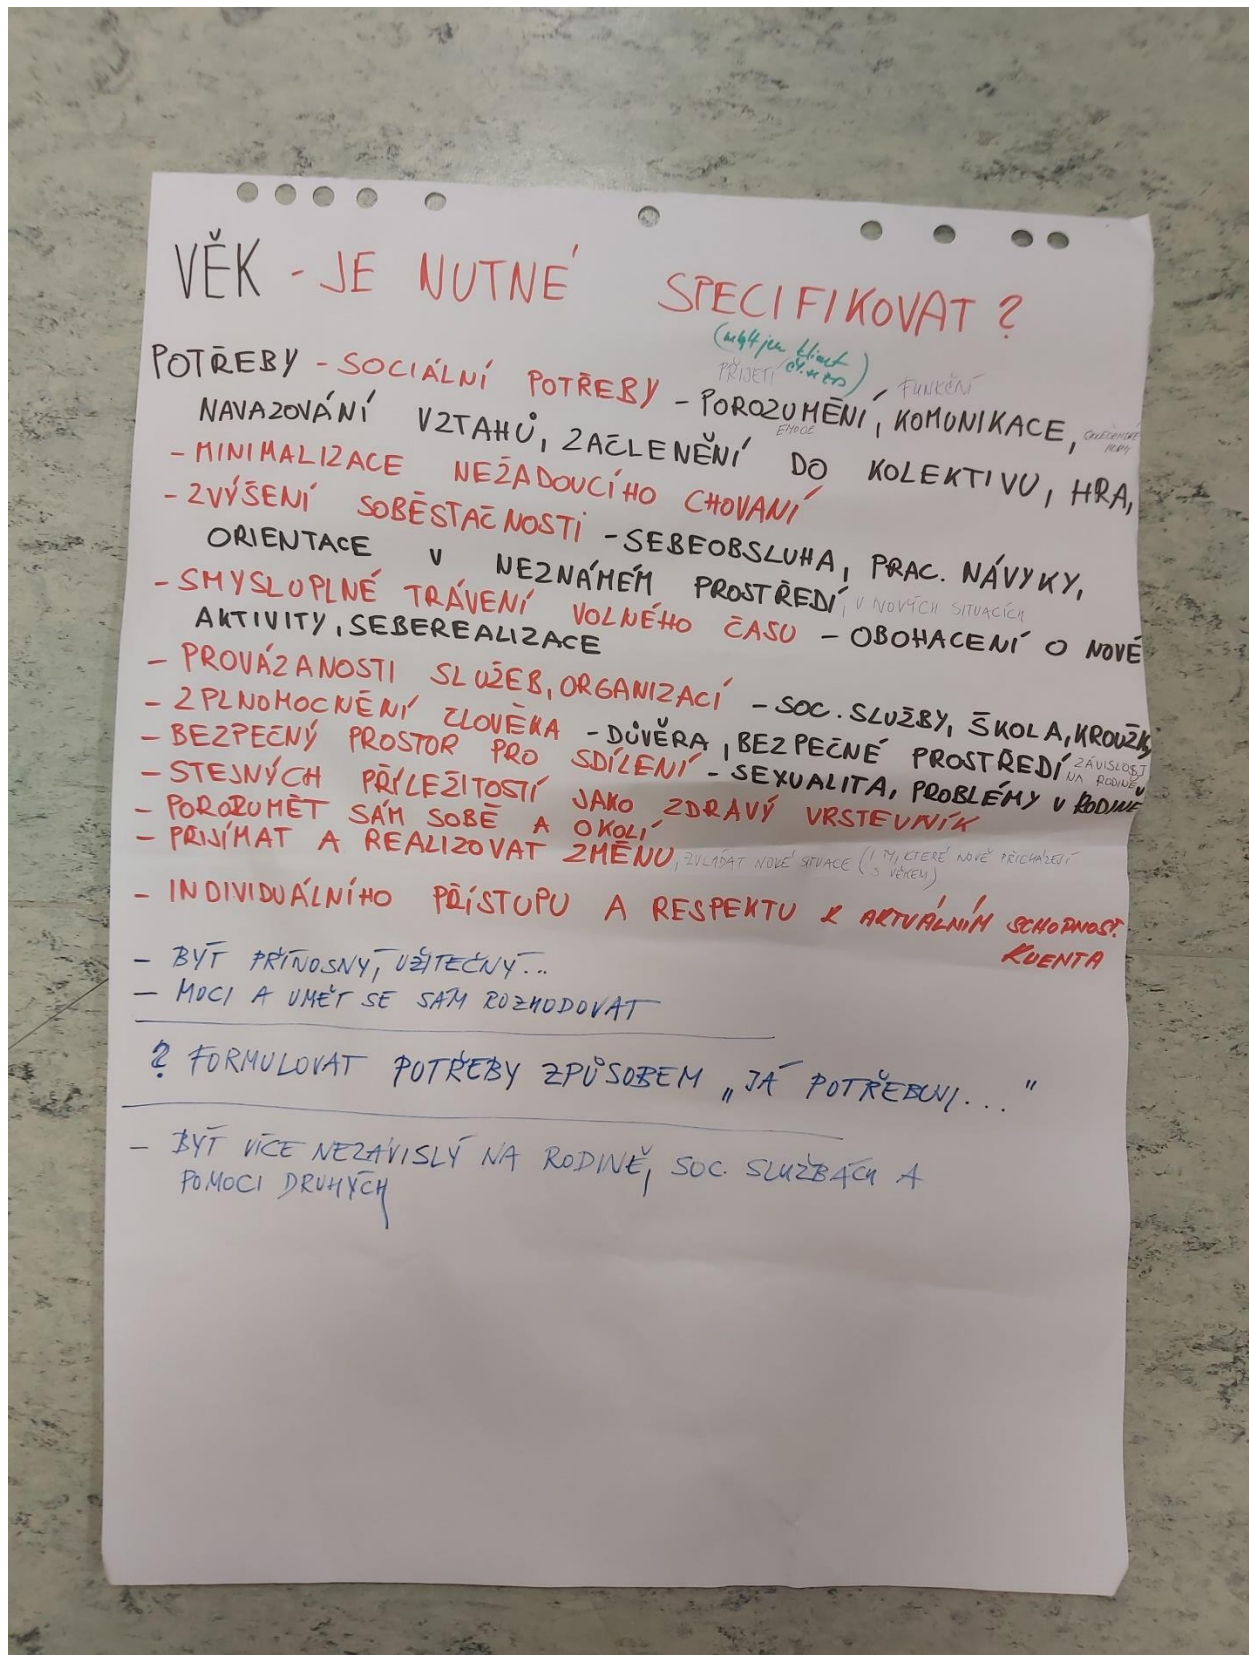 VĚK - JE NUTNÉ SPECIFIKOVAT ?
POTŘEBY - SOCIÁLNÍ POTŘEBY - POROZUMĚNÍ, KOMUNIKACE,
PŘIJETÍ
FUNKČNÍ
NAVAZOVÁNÍ VZTAHŮ, ZAČLENĚNÍ DO KOLEKTIVU, HRA,
EMOCE
- MINIMALIZACE NEŽÁDOUCÍHO CHOVANÍ
- ZVÝŠENÍ SOBĚSTAČNOSTI - SEBEOBSLUHA, PRAC. NÁVYKY,
ORIENTACE V NEZNÁMÉM PROSTŘEDÍ, V NOVÝCH SITUACÍCH
- SMYSLUPLNÉ TRÁVENÍ VOLNÉHO ČASU - OBOHACENÍ O NOVÉ
AKTIVITY, SEBEREALIZACE
- PROVÁZANOSTI SLUŽEB, ORGANIZACÍ - SOC. SLUŽBY, ŠKOLA, KROUŽKY
- ZPLNOMOCNĚNÍ ČLOVĚKA - DŮVĚRA, BEZPEČNÉ PROSTŘEDÍ ZÁVISLOST
NA RODINĚ
- BEZPEČNÝ PROSTOR PRO SDÍLENÍ - SEXUALITA, PROBLÉMY V RODINĚ
- STEJNÝCH PŘÍLEŽITOSTÍ JAKO ZDRAVÝ VRSTEVNÍK
- POROZUMĚT SÁM SOBĚ A OKOLÍ
- PŘIJÍMAT A REALIZOVAT ZMĚNU, ZVLÁDAT NOVÉ SITUACE (I TY, KTERÉ NOVĚ PŘICHÁZEJÍ
S VĚKEM)
- INDIVIDUÁLNÍHO PŘÍSTUPU A RESPEKTU K AKTUÁLNÍM SCHOPNOST.
KLIENTA
- BÝT PŘÍNOSNÝ, UŽITEČNÝ...
- MOCI A UMĚT SE SÁM ROZHODOVAT
? FORMULOVAT POTŘEBY ZPŮSOBEM „JÁ POTŘEBUJI..."
- BÝT VÍCE NEZÁVISLÝ NA RODINĚ, SOC. SLUŽBÁCH A
POMOCI DRUHÝCH